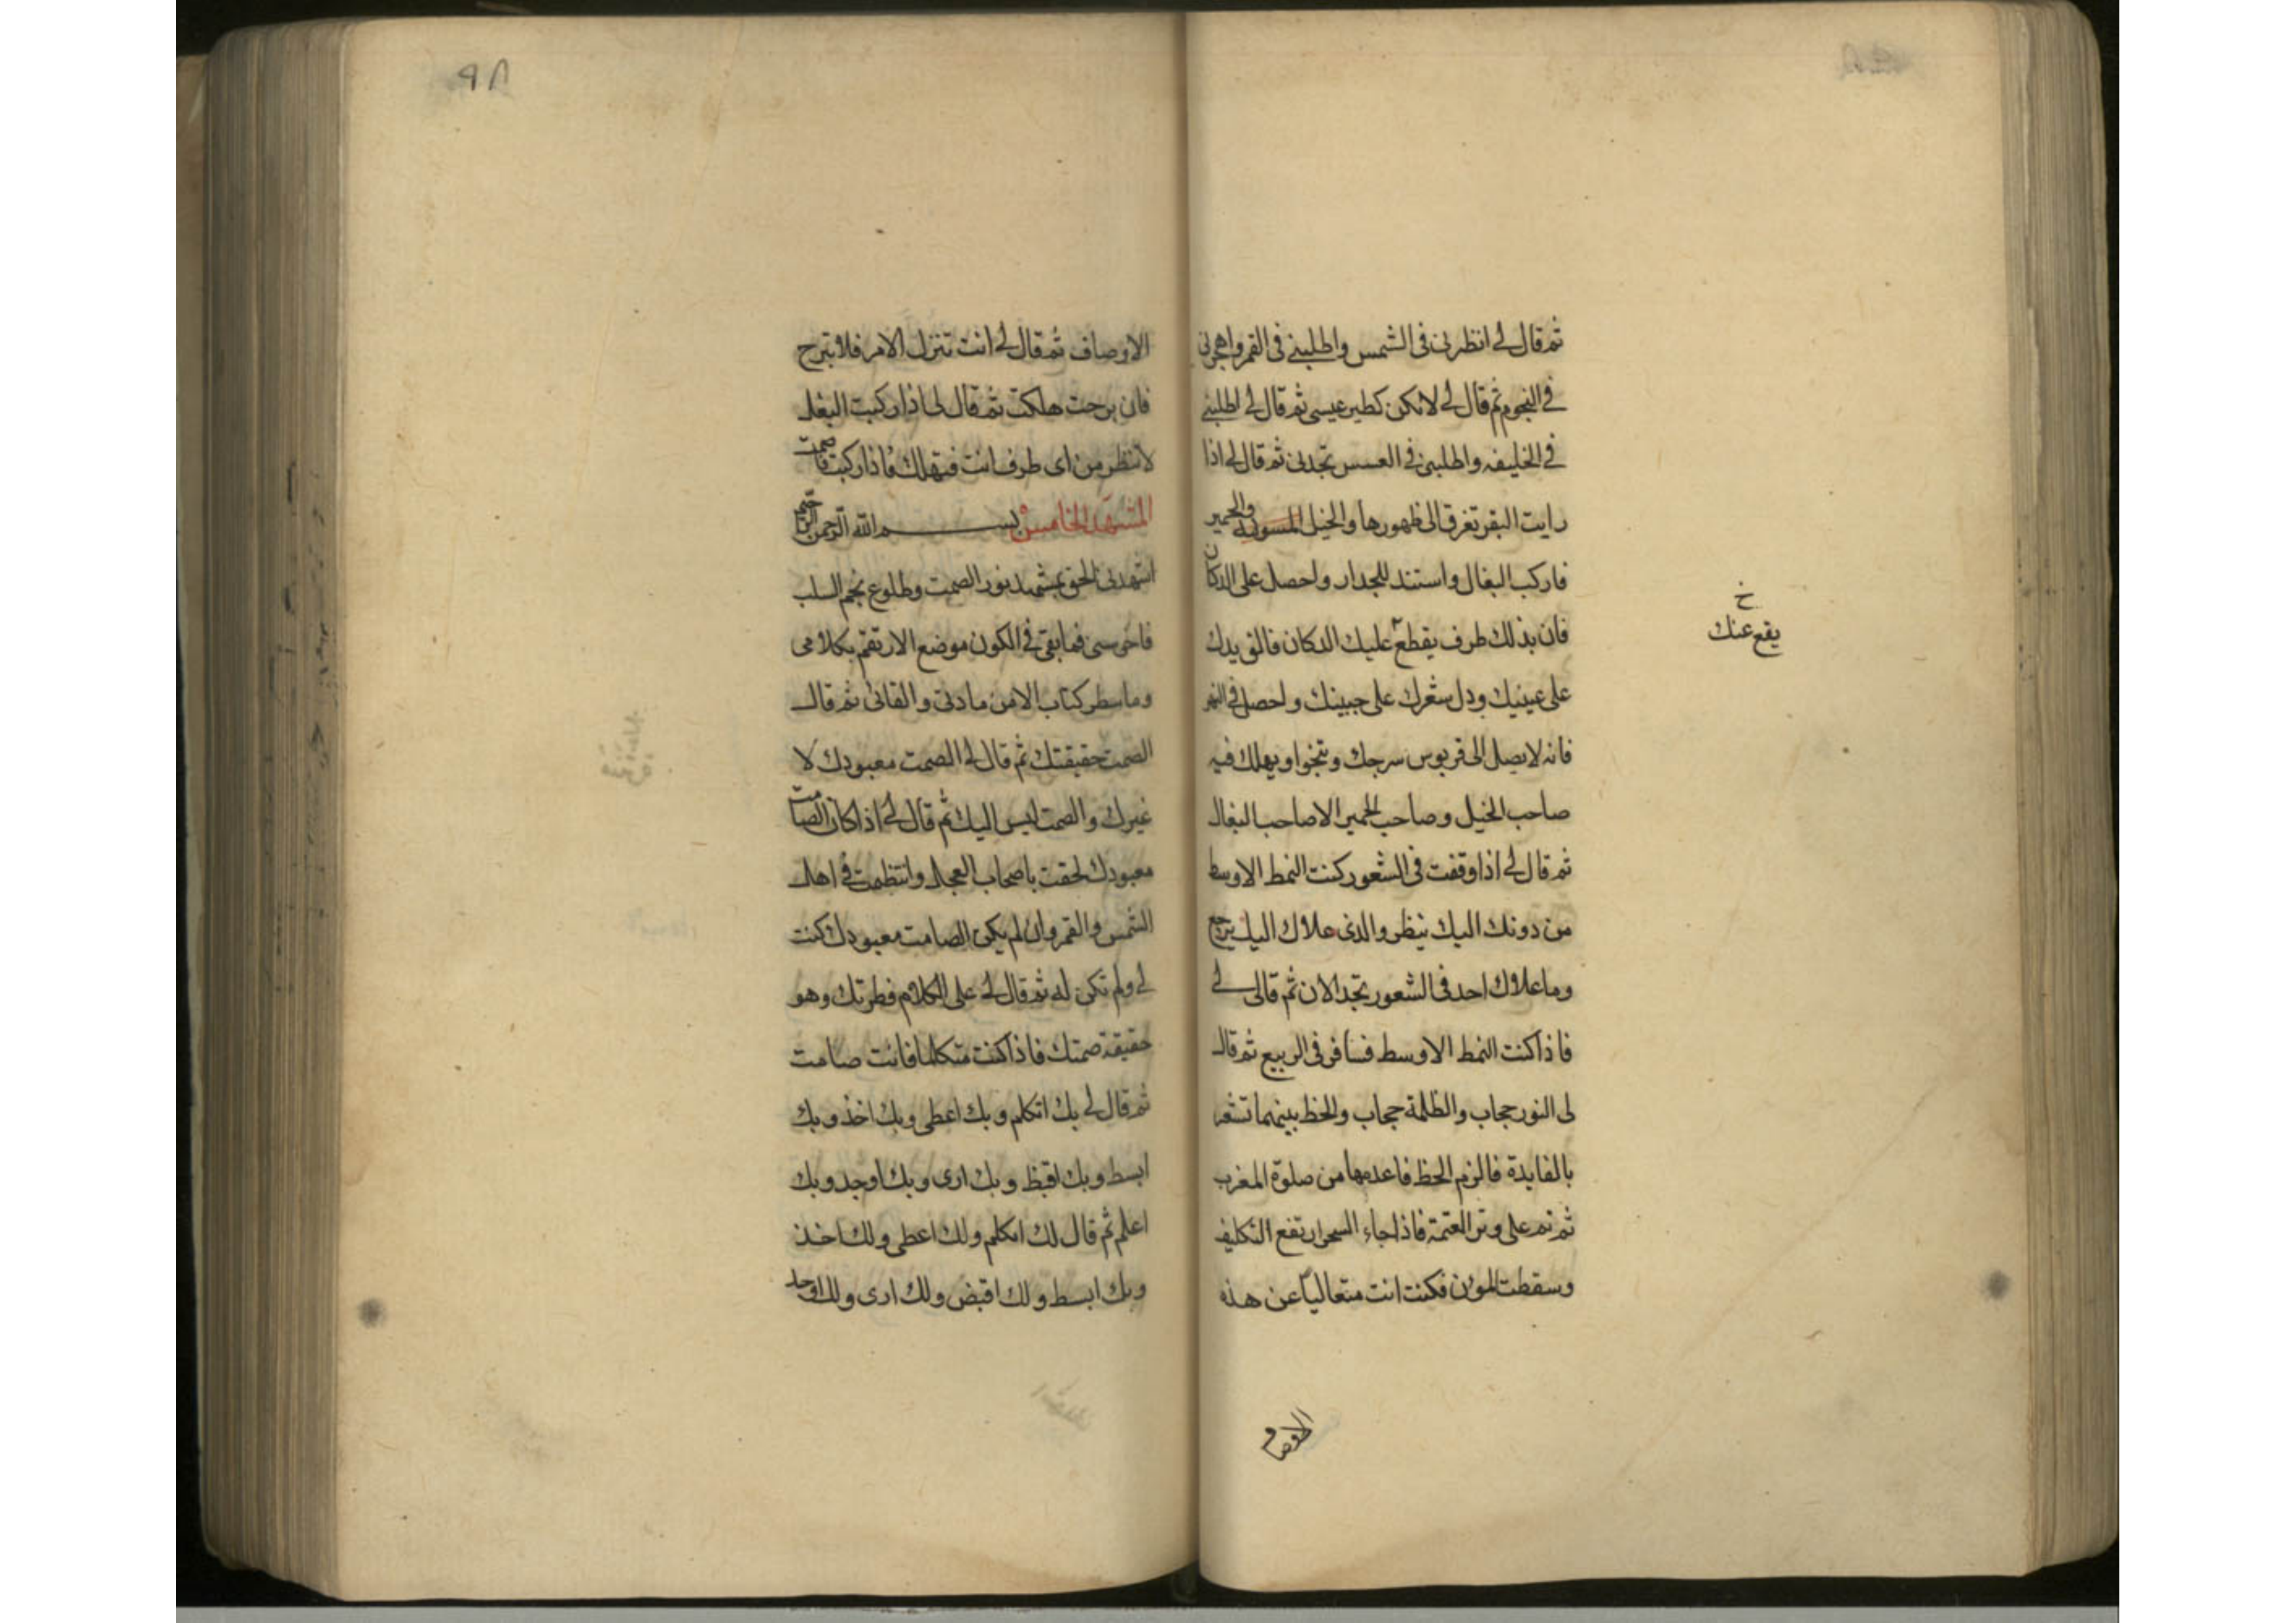 ثم قال لى انظرنى فى الشمس واطلبنى فى القمر واهجرنى
فى النجوم ثم قال لى لا تكن كطير عيسى ثم قال لى اطلبنى
فى الخليفه واطلبنى فى العسس تجدنى ثم قال لى اذا
رايت البقر تغرق الى ظهورها والخيل المسومة والحمير
فاركب البغال واستند للجدار واحصل على الدكان
فان بذلك طرف يقطع عليك الدكان فالق يدك
على عينيك ودل شعرك على جبينك واحصل فى النهر
فانه لا يصل الى قربوس سرجك وتنجوا ويهلك فيه
صاحب الخيل وصاحب الحمير الا صاحب البغال
ثم قال لى اذا وقفت فى الشعور كنت النمط الاوسط
من دونك اليك ينظر والذى علاك اليك يرجع
وما علاك احد فى الشعور تجد الان ثم قال لى
فاذا كنت النمط الاوسط فسافر فى الربيع ثم قال
لى النور حجاب والظلمة حجاب والخط بينهما تشعر
بالفايدة فالزم الخط فاعدمها من صلوة المغرب
ثم نم على وتر العتمة فاذا جاء السحر ارتفع التكليف
وسقطت المون فكنت انت متعاليا عن هذه
الاوصاف
خ
يقع عنك
٩٨
الاوصاف ثم قال لى انت تنزل الامر فلا تبرح
فان برحت هلكت ثم قال لى اذا ركبت البغل
لا تنظر من اى طرف انت فتهلك فاذا ركبت فاصمت
المشهد الخامس بسم الله الرحمن الرحيم
اشهدنى الحق بمشهد نور الصمت وطلوع نجم السلب
فاخرسنى فما بقى فى الكون موضع الا ارتقم بكلامى
وما سطر كتاب الا من مادتى والقائى ثم قال
الصمت حقيقتك ثم قال لى الصمت معبودك لا
غيرك والصمت ليس اليك ثم قال لى اذا كان الصامت
معبودك لحقت باصحاب العجل وانتظمت فى اهل
الشمس والقمر وان لم يكن الصامت معبودك كنت
لى ولم تكن له ثم قال لى على الكلام فطرتك وهو
حقيقة صمتك فاذا كنت متكلما فانت صامت
ثم قال لى بك اتكلم وبك اعطى وبك اخذ وبك
ابسط وبك اقبظ وبك ارى وبك اوجد وبك
اعلم ثم قال لك اتكلم ولك اعطى ولك اخذ
وبك ابسط ولك اقبض ولك ارى ولك اوجد